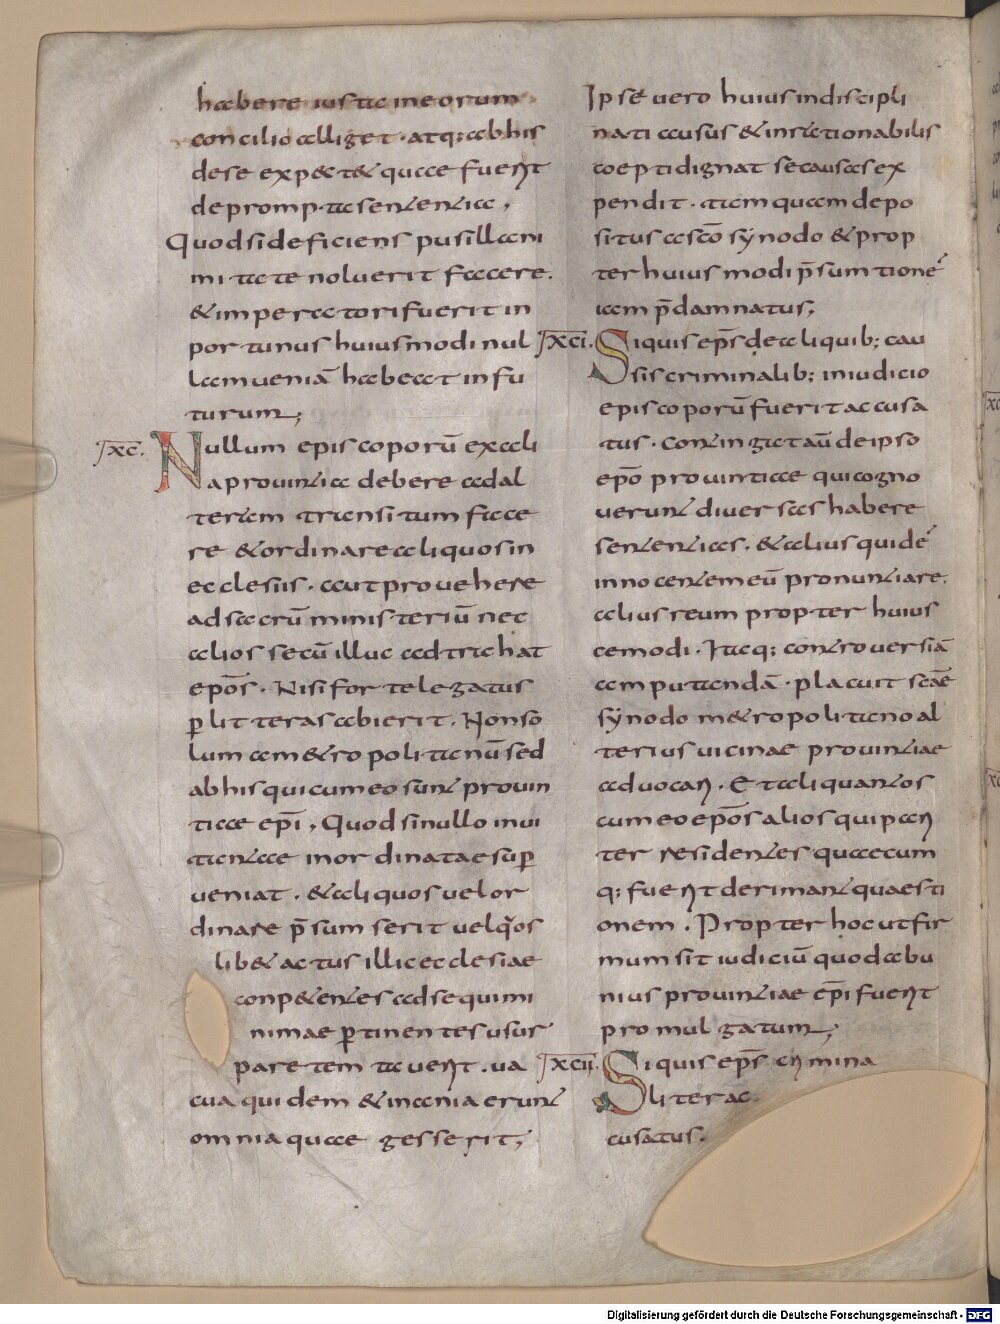 habere iusta meorum
concilio elliget · atq; abhis
dese expectet quae fuerit
depromp·ta sententia,
Quodsideficiens pusillani
mitate noluerit facere.
& imperatori fuerit in
portunus huiusmodi nul
lam ueniā habeat in fu
turum;
xc. Nullum episcoporū ex ali
a prouintia debere ad al
teram transitum face
re & ordinare aliquos in
ecclesiis · aut prouehere
ad sacrū ministeriū nec
alios secū illuc ad trahat
ep̄os · Nisi forte legatus
p̱ litteras abierit · Non so
lum a metropolitanū sed
ab his qui cum eo sunt prouin
tiae ep̄i, Quod si nullo inui
tante inordinatae sup̱
ueniat · & aliquos uel or
dinare p̄sumserit uel q̊os
lib& actus illic ecclesiae
conpetentes ad se qui mi
nimae p̱tinentes usur
pare temtauerit · ua
cua quidem & inania erunt
omnia quae gesserit;
Ipse uero huius indiscipli
nati ausus & inrationabilis
coepti dignas se causas ex
pendit · tamquam depo
situs a s̄co synodo & prop
ter huiusmodi p̄sumtionē
iam p̄damnatus;
xci. Siquis ep̄s de aliquib; cau
sis criminalib; in iudicio
episcoporū fuerit accusa
tus · contingat aū de ipso
ep̄o prouintiae qui cogno
uerunt diuersas habere
sententias · & alius quidē
innocentem eū pronuntiare.
alius reum propter huius
cemodi · Itaq; controuersiā
amputandā · placuit s̄cae
synodo metropolitano al
terius uicinae prouintiae
aduocari · Et aliquantos
cum eo ep̄os alios qui pari
ter residentes quaecum
q; fuerit derimant quaesti
onem · Propter hoc ut fir
mum sit iudiciū quod ab u
nius prouintiae ep̄i fuerit
promulgatum;
xcii. Siquis ep̄s crimina
liter ac
cusatus.
Digitalisierung gefördert durch die Deutsche Forschungsgemeinschaft - DFG